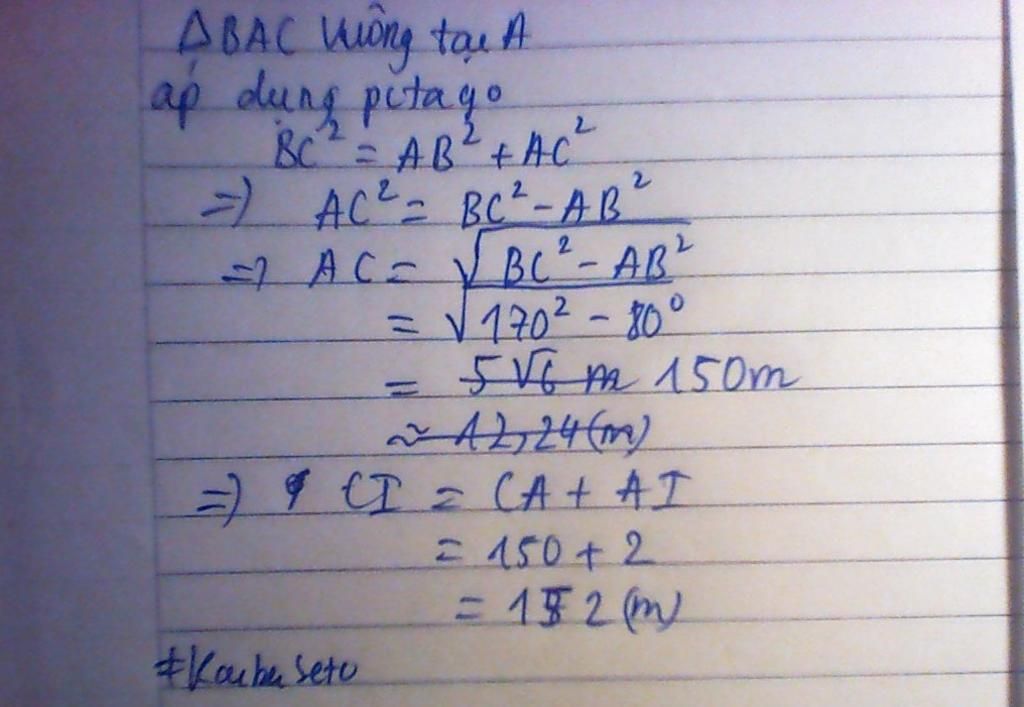 ΔBAC vuông tại A
áp dụng pitago
BC² = AB² + AC²
=> AC² = BC² - AB²
=> AC = √(BC² - AB²)
= √(170² - 80⁰
= 5√6 m 150m
≈ 12,24(m)
=> CI = CA + AI
= 150 + 2
= 152 (m)
#Kaiba Seto